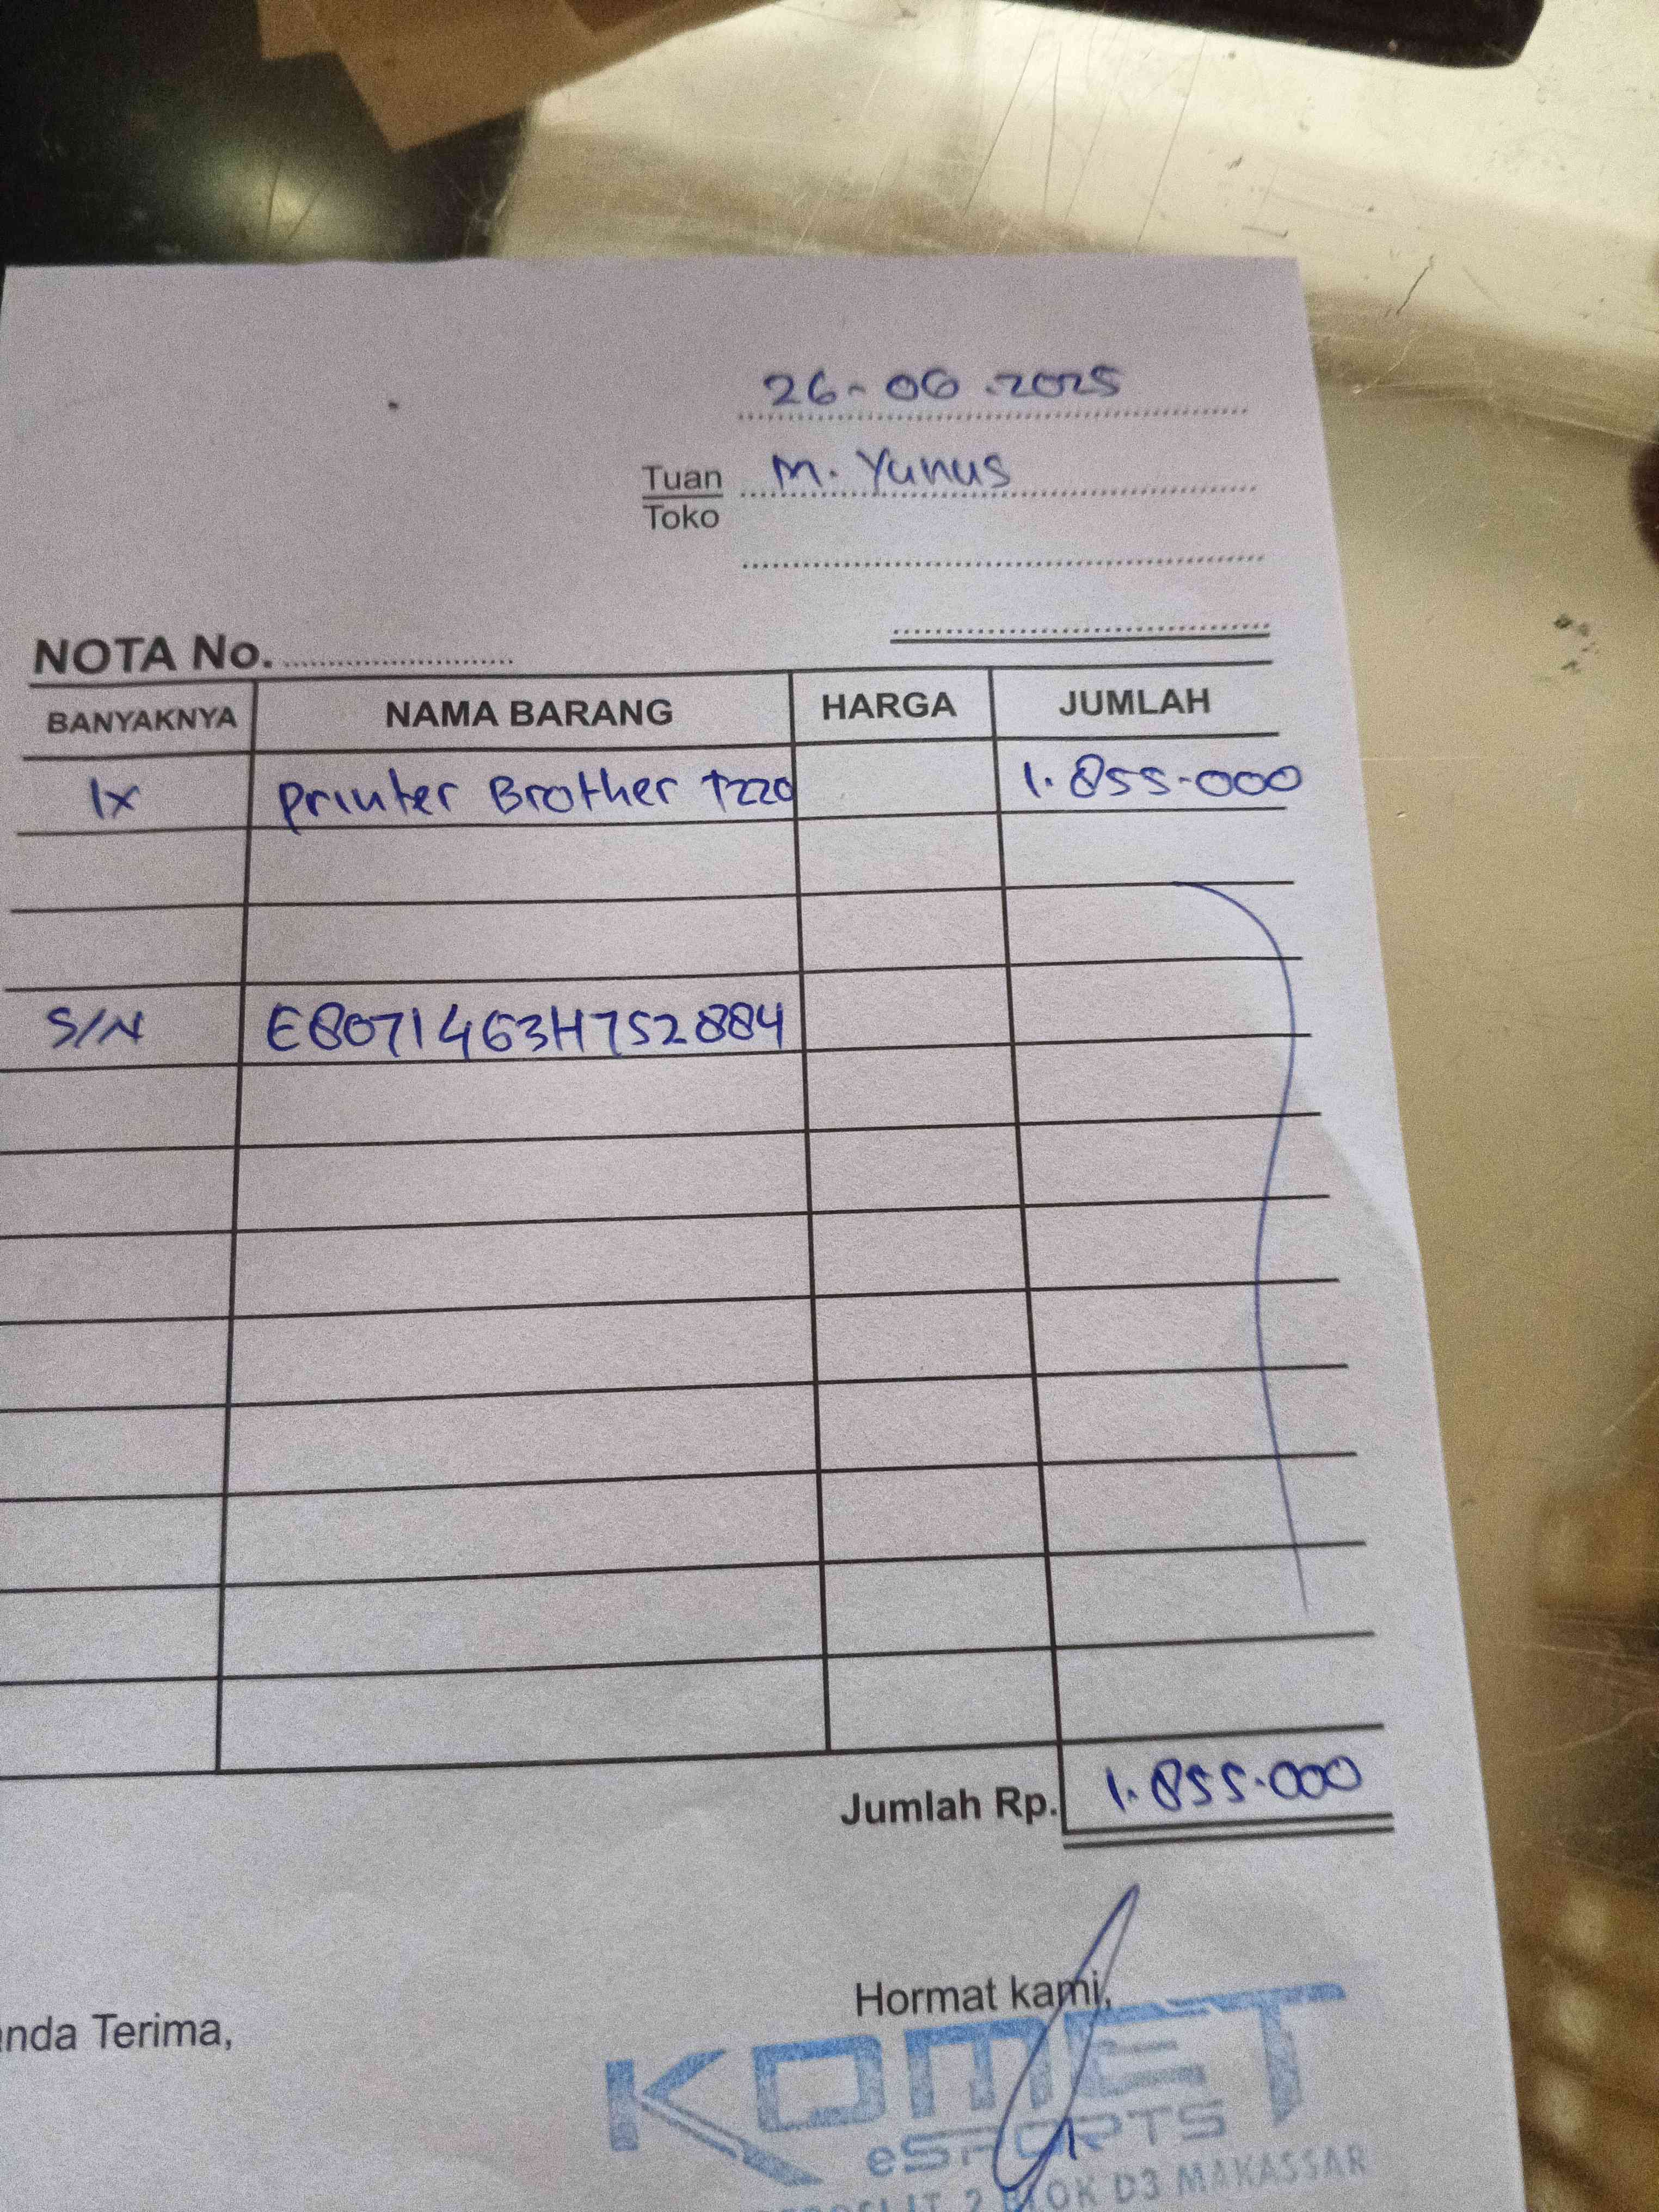 26-06-2025
Tuan M. Yunus
Toko
NOTA No.
BANYAKNYA NAMA BARANG HARGA JUMLAH
1x Printer Brother T220 1.855.000
S/N E8071463H752884
Jumlah Rp. 1.855.000
Hormat kami,
anda Terima,
KOMET
eSPORTS
2 BLOK D3 MAKASSAR